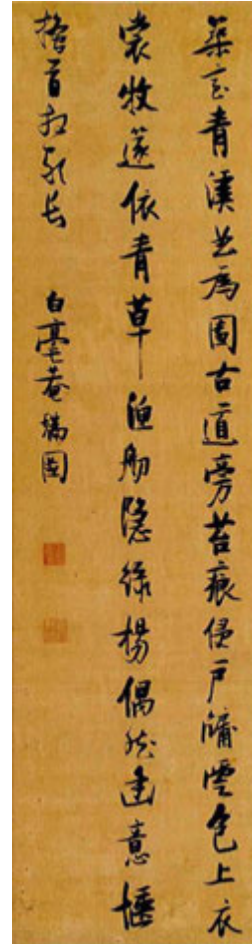 築室青溪上為園古道旁苔痕侵戶牖雲色上衣
裳牧篴依青草漁舠隱綠楊偶然幽意愜
搔首歌長 白毫菴瑞圖